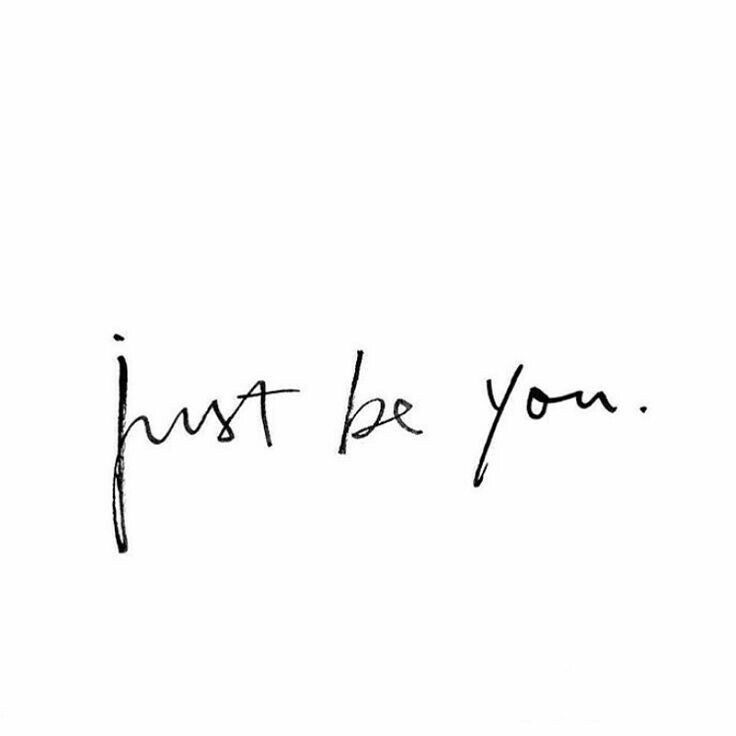 just be you.